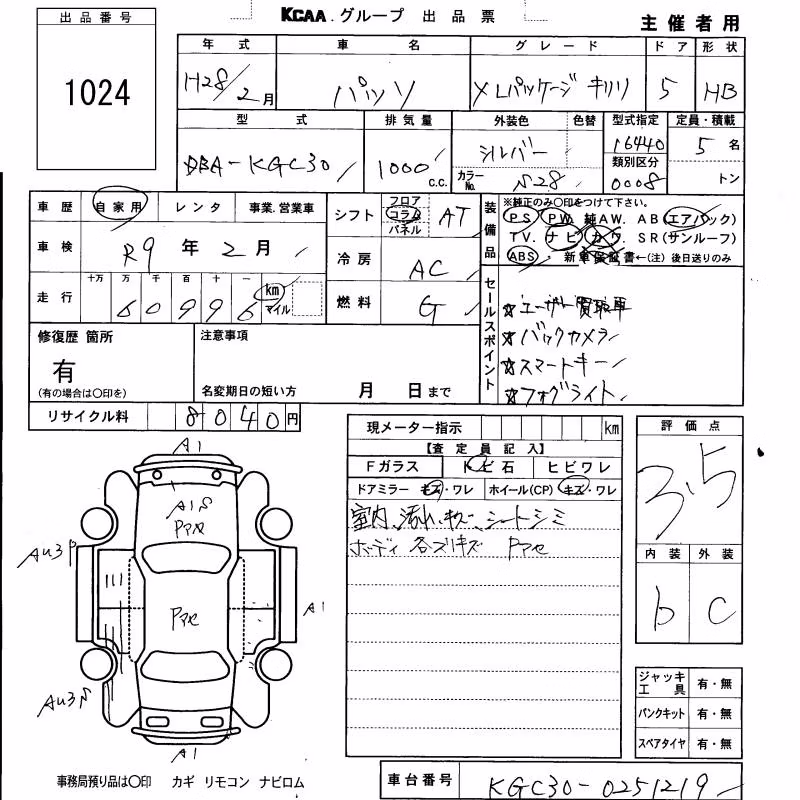 KCAA.グループ 出品票
主催者用
出品番号
1024
年式 車名 グレード ドア 形状
H28/2月 パッソ X Lパッケージ キリリ 5 HB
型式 排気量 外装色 色替 型式指定 定員・積載
DBA-KGC30 1000 c.c. シルバー 16440 5名
カラーNo. S28 類別区分 0008 トン
車歴 自家用 レンタ 事業.営業車
シフト フロア コラム パネル AT
装備品 ※純正のみ〇印をつけて下さい。
PS PW. 純AW. AB(エアバック)
TV. ナビ カワ SR(サンルーフ)
ABS・新車保証書←(注)後日送りのみ
車検 R9年2月
冷房 AC
走行 十万 万 千 百 十 一
60996 km マイル
燃料 G
セールスポイント
☆ユーザー買取車
☆バックカメラ
☆スマートキー
☆フォグライト
修復歴 箇所
有
(有の場合は〇印を)
注意事項
名変期日の短い方 月 日まで
リサイクル料 8040円
現メーター指示 km
【査定員記入】
Fガラス トビ石 ヒビワレ
ドアミラー キズ・ワレ ホイール(CP) キズ・ワレ
室内 汚れ キズ シートシミ
ボーディ 各スリキズ Pアセ
評価点
3.5
内装 外装
b C
A1
A1S
Pアセ
AU3P
Pアセ
A1
AU3S
A1
ジャッキ工具 有・無
パンクキット 有・無
スペアタイヤ 有・無
事務局預り品は〇印 カギ リモコン ナビロム
車台番号 KGC30-0251219